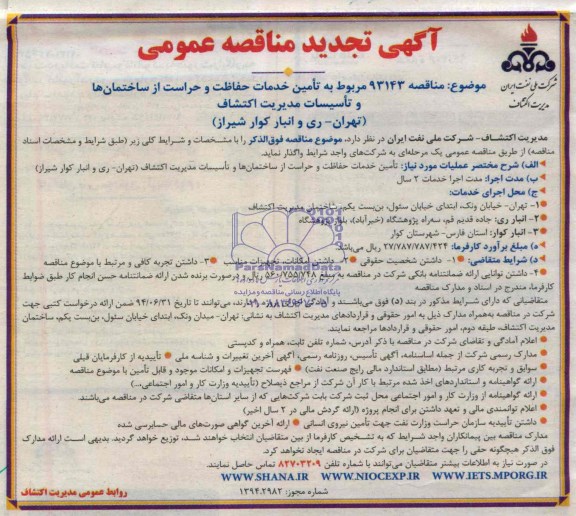 آگهی تجدید مناقصه عمومی
شرکت ملی نفت ایران
مدیریت اکتشاف
موضوع: مناقصه ۹۳۱۴۳ مربوط به تأمین خدمات حفاظت و حراست از ساختمان‌ها
و تأسیسات مدیریت اکتشاف
(تهران- ری و انبار کوار شیراز)
مدیریت اکتشاف- شرکت ملی نفت ایران در نظر دارد، موضوع مناقصه فوق‌الذکر را با مشخصات و شرایط کلی زیر (طبق شرایط و مشخصات اسناد
مناقصه) از طریق مناقصه عمومی یک مرحله‌ای به شرکت‌های واجد شرایط واگذار نماید.
الف) شرح مختصر عملیات مورد نیاز: تأمین خدمات حفاظت و حراست از ساختمان‌ها و تأسیسات مدیریت اکتشاف (تهران- ری و انبار کوار شیراز)
ب) مدت اجرا: مدت اجرا خدمات ۲ سال
ج) محل اجرای خدمات:
۱- تهران- خیابان ونک، ابتدای خیابان سئول، بن‌بست یکم، ساختمان مدیریت اکتشاف
۲- انبار ری: جاده قدیم قم، سه‌راه پژوهشگاه (خیرآباد)، بلوار پژوهشگاه
۳- انبار کوار: استان فارس- شهرستان کوار
ه) مبلغ برآورد کارفرما: ۲۷/۷۸۷/۷۸۷/۴۲۴ ریال می‌باشد
د) شرایط متقاضی: ۱- داشتن شخصیت حقوقی ۲- داشتن امکانات، تجهیزات مناسب ۳- داشتن تجربه کافی و مرتبط با موضوع مناقصه
۴- داشتن توانایی ارائه ضمانتنامه بانکی شرکت در مناقصه به مبلغ ۵۶۰/۷۵۵/۷۴۸ ریال و درصورت برنده شدن ارائه ضمانتنامه حسن انجام کار طبق ضوابط
کارفرما، مندرج در اسناد و مدارک مناقصه
متقاضیانی که دارای شرایط مذکور در بند (د) فوق می‌باشند و آمادگی می‌توانند تا تاریخ ۹۴/۰۶/۳۱ ضمن ارائه درخواست کتبی جهت
شرکت در مناقصه به‌همراه مدارک ذیل به امور حقوقی و قراردادهای مدیریت اکتشاف به نشانی: تهران- میدان ونک، ابتدای خیابان سئول، بن‌بست یکم، ساختمان
مدیریت اکتشاف، طبقه دوم، امور حقوقی و قراردادها مراجعه نمایند.
اعلام آمادگی و تقاضای شرکت در مناقصه با ذکر آدرس، شماره تلفن ثابت، همراه و کدپستی
مدارک رسمی شرکت از جمله اساسنامه، آگهی تأسیس، روزنامه رسمی، آگهی آخرین تغییرات و شناسه ملی • تأییدیه از کارفرمایان قبلی
سوابق و تجربه کاری مرتبط (مطابق استاندارد مالی رایج صنعت نفت) • فهرست تجهیزات و امکانات موجود و قابل تأمین با موضوع مناقصه
ارائه گواهینامه و استانداردهای اخذ شده مرتبط با کار آن شرکت از مراجع ذیصلاح (تأییدیه وزارت کار و امور اجتماعی،...)
ارائه گواهینامه از وزارت کار و امور اجتماعی محل ثبت شرکت بابت شرکت‌هایی که از سایر استان‌ها متقاضی شرکت در مناقصه می‌باشند.
اعلام توانمندی مالی و تعهد داشتن برای انجام پروژه (ارائه گردش مالی در ۲ سال اخیر)
داشتن تأییدیه سازمان حراست وزارت نفت جهت تأمین نیروی انسانی • ارائه آخرین گواهی صورت‌های مالی حسابرسی شده
مدارک مناقصه بین پیمانکاران واجد شرایط که به تشخیص کارفرما از بین متقاضیان انتخاب خواهند شد، توزیع خواهد گردید. بدیهی است ارائه مدارک
فوق الذکر هیچگونه حقی را جهت متقاضیان برای شرکت در مناقصه ایجاد نخواهد کرد.
در صورت نیاز به اطلاعات بیشتر متقاضیان می‌توانند با شماره تلفن ۸۲۷۰۳۲۰۹ تماس حاصل نمایند.
WWW.SHANA.IR WWW.NIOCEXP.IR WWW.IETS.MPORG.IR
شماره مجوز: ۱۳۹۴.۲۹۸۲
روابط عمومی مدیریت اکتشاف
ParsNamadData
پایگاه اطلاع رسانی مناقصه و مزایده